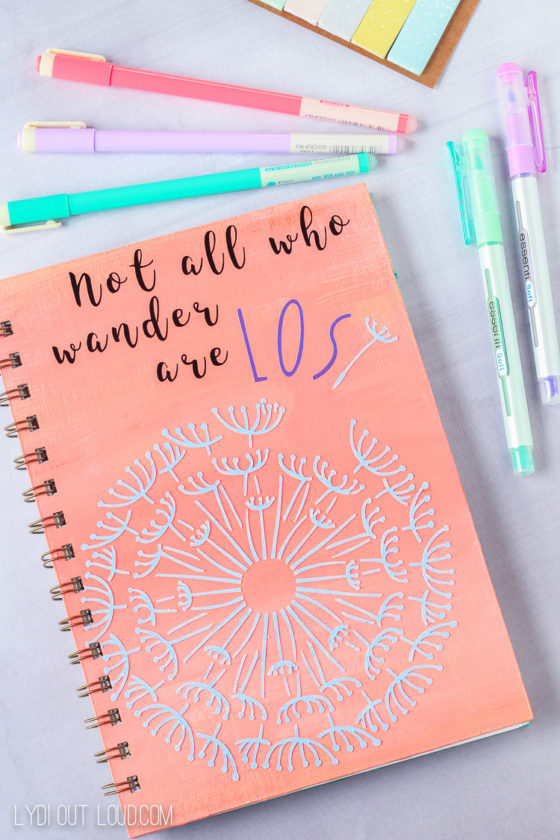 Not all who
wander
are LOS
essenti Soft
essenti Soft
LYDI OUT LOUD.COM